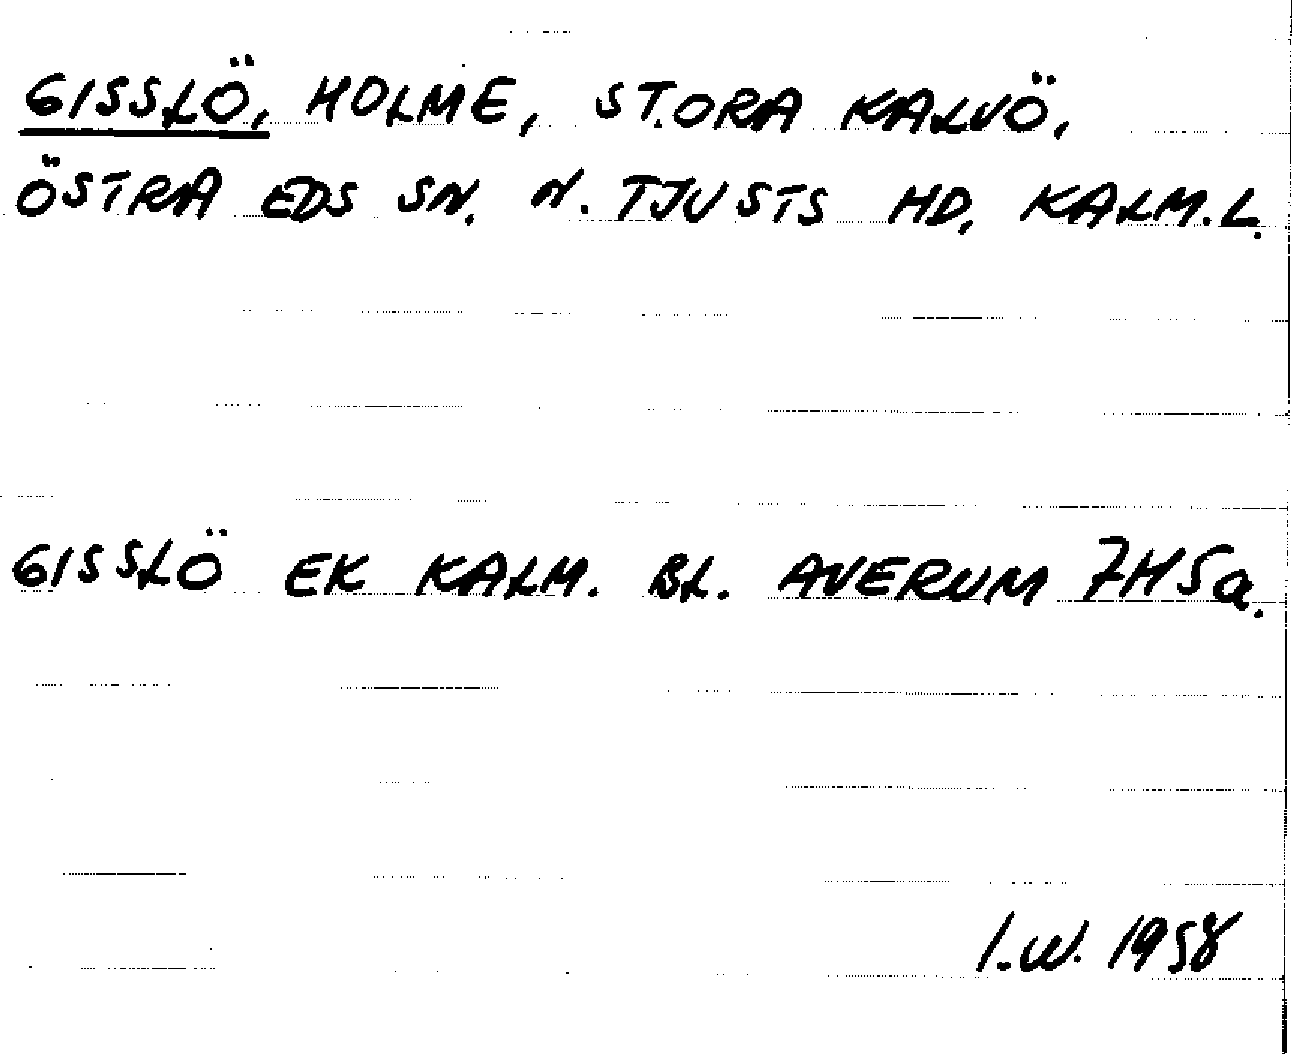 GISSLÖ, HOLME, STORA KALVÖ,
ÖSTRA EDS SN. N. TJUSTS HD, KALM.L.
GISSLÖ EK KALM. BL. AVERUM 7H5a.
I.W. 1958